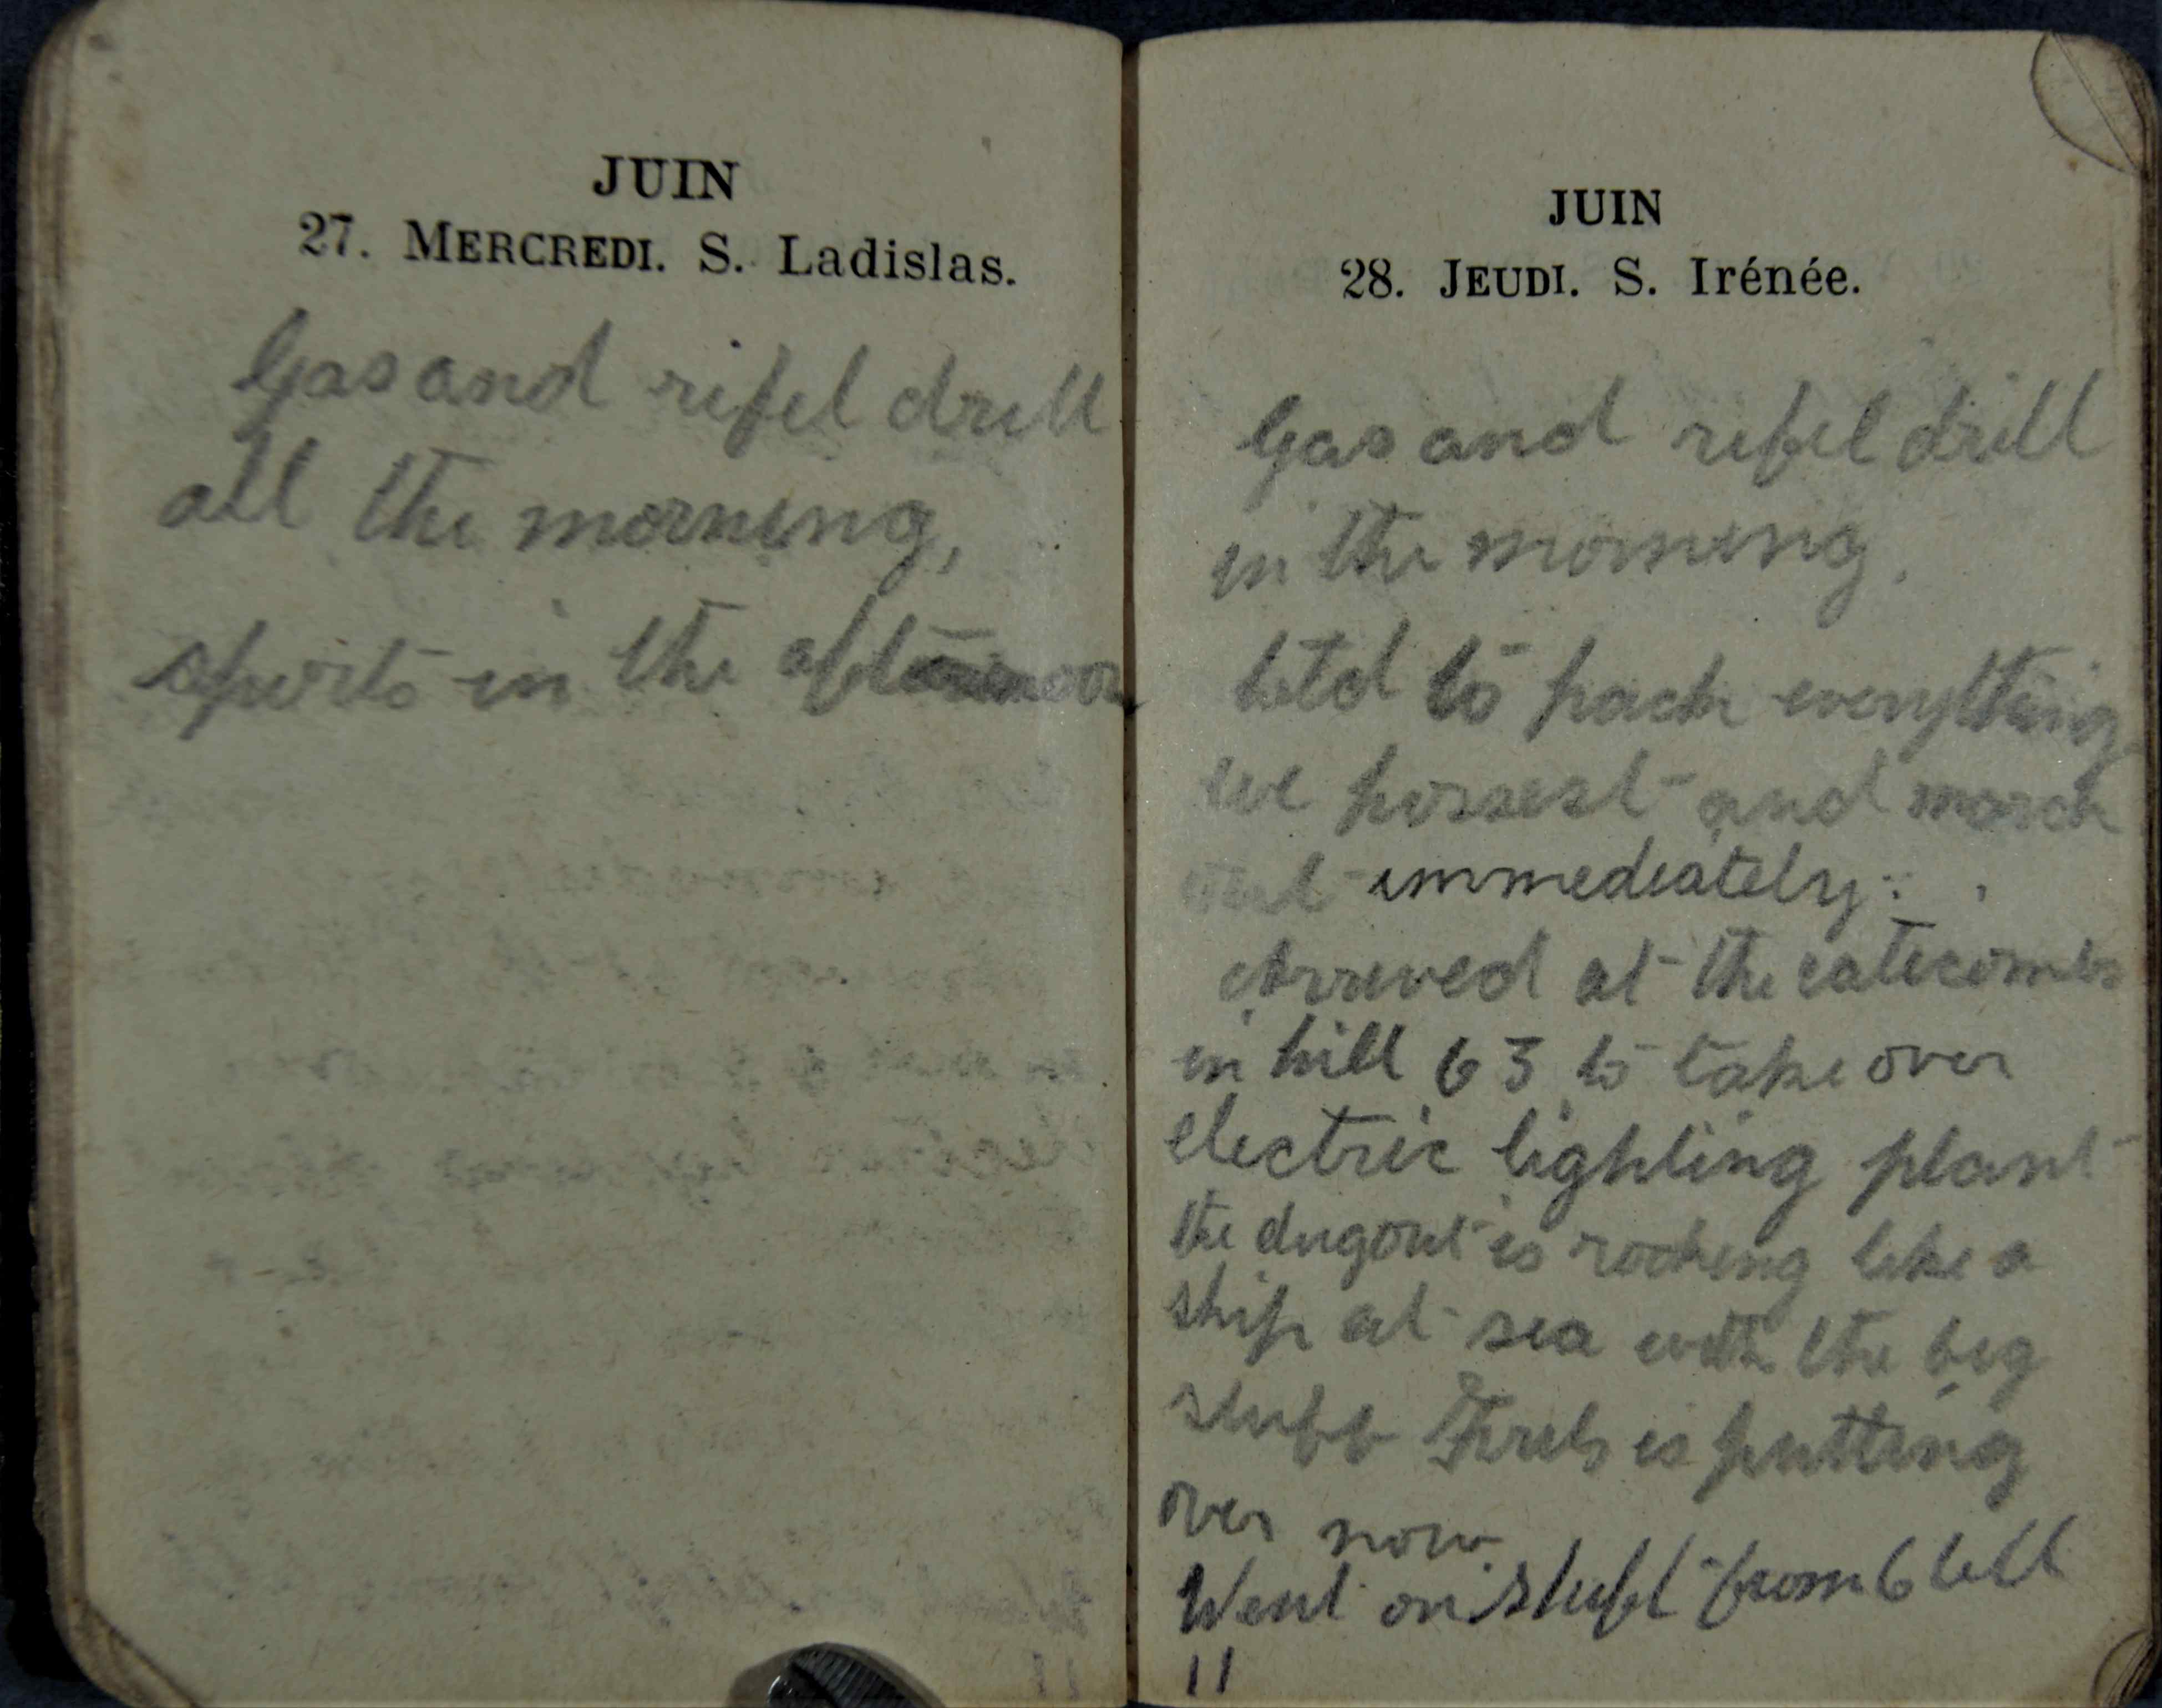 JUIN
27. MERCREDI. S. Ladislas.
Gas and rifel drill
all the morning,
sports in the afternoon
JUIN
28. JEUDI. S. Irénée.
Gas and rifel drill
in the morning.
to pack everything
we possest and march
out immediately.
Arrived at the catecombs
in hill 63 to take over
electric lighting plant
the dugout is rocking like a
ship at sea with the big
stuff Fritz is putting
over now.
Went on shift from 6 till
11